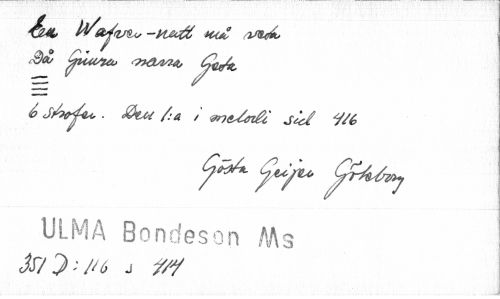 En Wafven-natt må veta
Då Giuru narra Geta
6 strofer. Den 1:a i melodi sid 416
Gösta Geijer Göteborg
ULMA Bondeson Ms
351 D:116 s 414